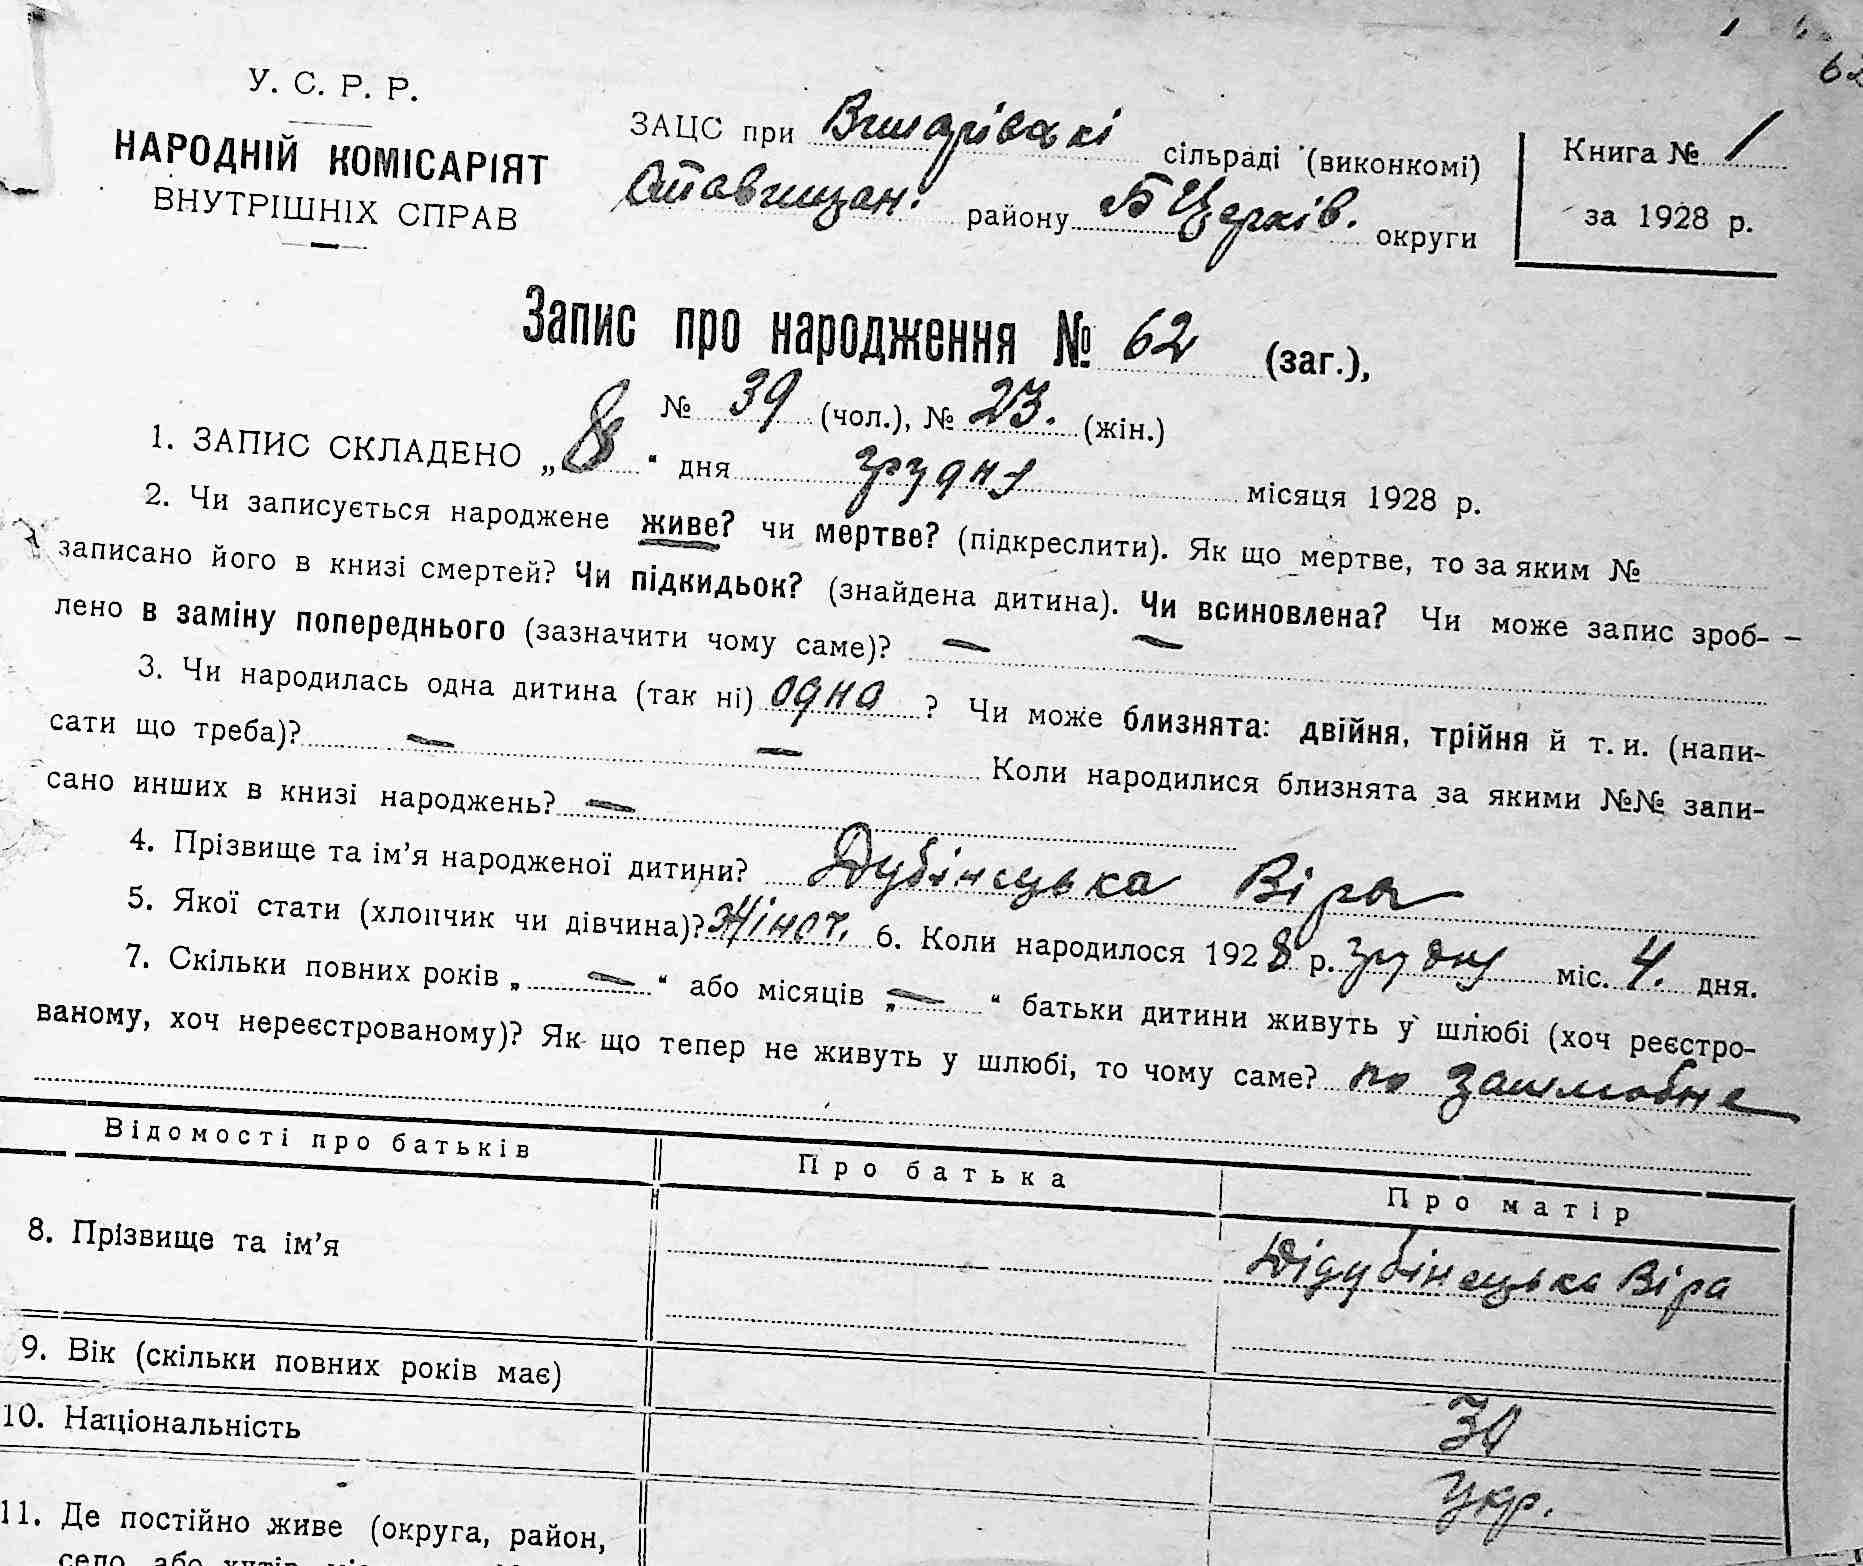 62
У. С. Р. Р.
НАРОДНІЙ КОМІСАРІЯТ
ВНУТРІШНІХ СПРАВ
ЗАЦС при сільраді (виконкомі)
Ставищан. району Б Церків. округи
Книга № 1
за 1928 р.
Запис про народження № 62 (заг.),
№ 39 (чол.), № 23. (жін.)
1. ЗАПИС СКЛАДЕНО „8“ дня грудня місяця 1928 р.
2. Чи записується народжене живе? чи мертве? (підкреслити). Як що мертве, то за яким №
записано його в книзі смертей? Чи підкидьок? (знайдена дитина). Чи всиновлена? Чи може запис зроб-
лено в заміну попереднього (зазначити чому саме)? — —
3. Чи народилась одна дитина (так ні) одна ? Чи може близнята: двійня, трійня й т. и. (напи-
сати що треба)? — — Коли народилися близнята за якими №№ запи-
сано инших в книзі народжень? —
4. Прізвище та ім’я народженої дитини? Дубінецька Віра
5. Якої стати (хлопчик чи дівчина)? Жіноч. 6. Коли народилося 1928 р. грудня міс. 4. дня.
7. Скільки повних років „ — “ або місяців „ — “ батьки дитини живуть у шлюбі (хоч реєстро-
ваному, хоч нереєстрованому)? Як що тепер не живуть у шлюбі, то чому саме? по зашлюбне
Відомості про батьків
Про батька
Про матір
8. Прізвище та ім’я
Дідубінецька Віра
9. Вік (скільки повних років має)
30
10. Національність
Укр.
11. Де постійно живе (округа, район,
село або хутір